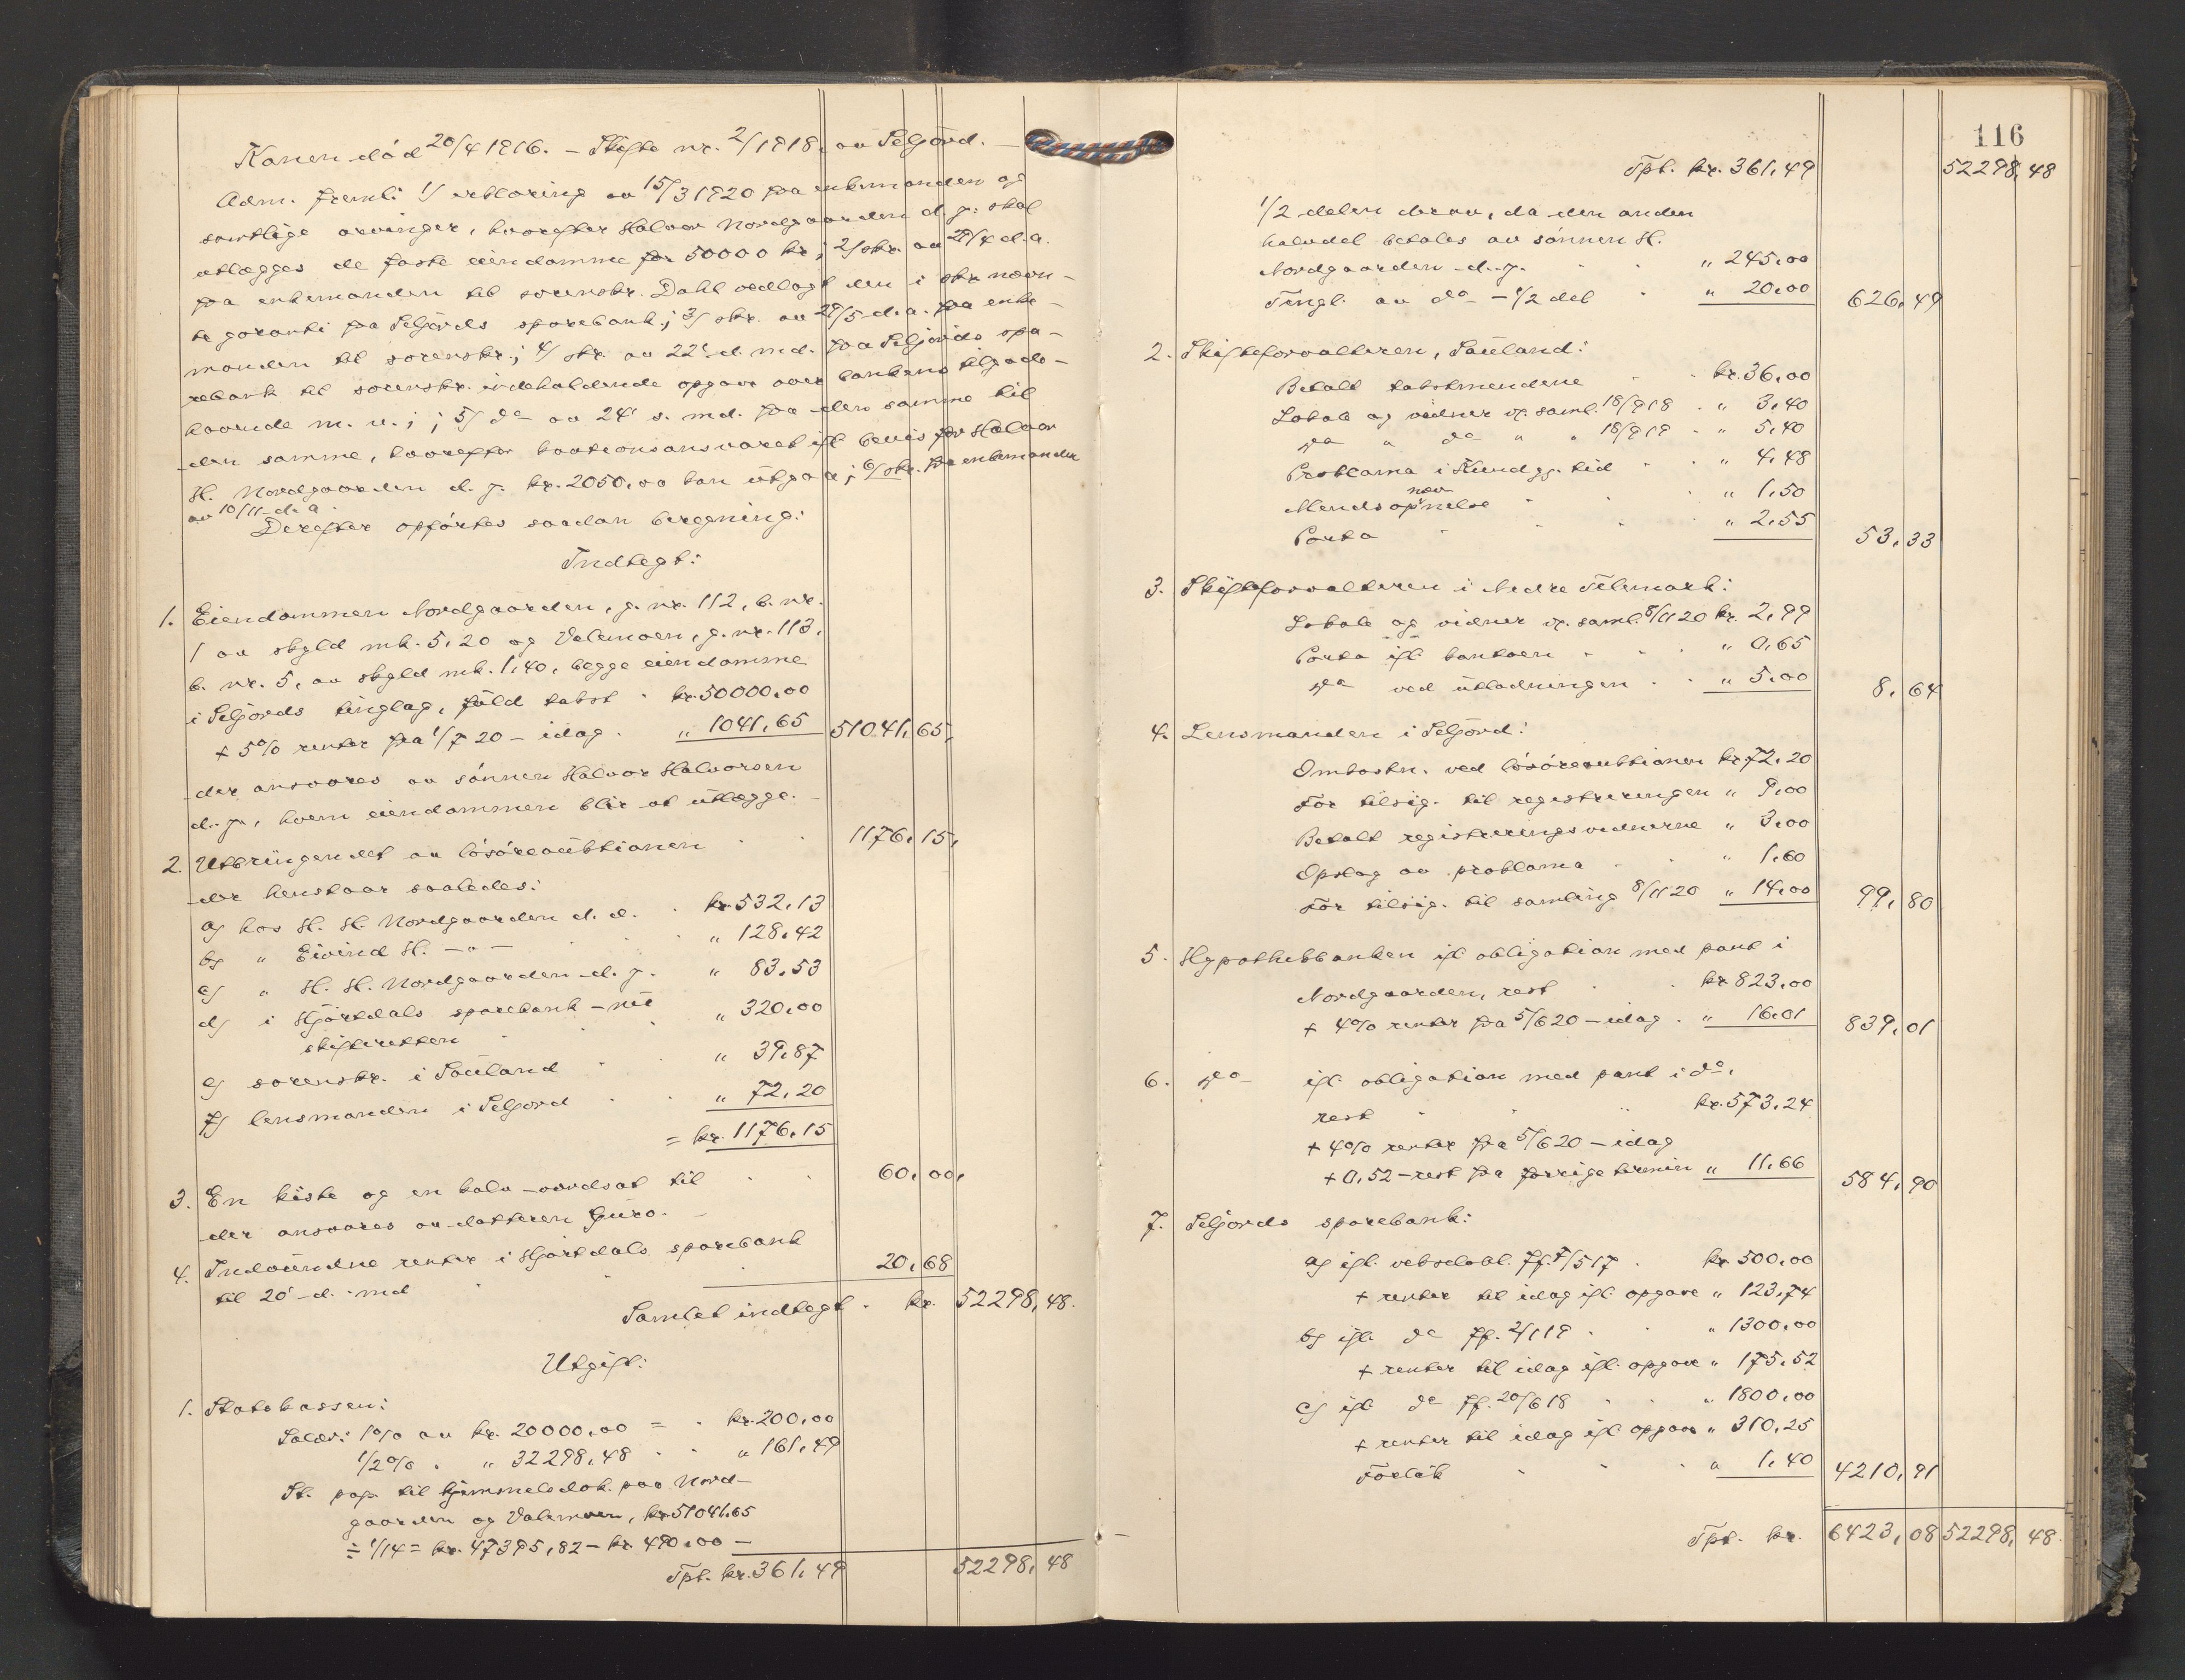 Konen död 20/4 1916. – Skifte nr. 2/1918, av Seljord. –
Adm. freml: 1/ erklæring av 15/3 1920 fra enkemanden og
samtlige arvinger, hvorefter Halvor Nordgaarden d. y. skal
utlægges de faste eiendomme for 50000 kr; 2/ skr. av 29/4 d. a.
fra enkemanden til sorenskr. Dahl vedlagt den i skr. nævn-
te garanti fra Seljords sparebank; 3/ skr. av 29/5 d. a. fra enke-
manden til sorenskr.; 4/ skr. av 22' d. md. fra Seljords spa-
rebank til sorenskr. indeholdende opgave over bankens tilgode-
havende m. v.; ; 5/ do av 24' s. md. fra den samme til
den samme, hvorefter kautionsansvaret ifl. bevis for Halvor
H. Nordgaarden d. y. kr. 2050,00 kan utgaa; 6/ skr. fra enkemanden
av 10/11 d. a.
Derefter opförtes saadan beregning:
Indtegt:
1. Eiendommen Nordgaarden, g. nr. 112, b. nr.
1 av skyld mk. 5,20 og Valemoen, g. nr. 113,
b. nr. 5, av skyld mk. 1,40, begge eiendomme
i Seljords tinglag, fuld takst . kr. 50000,00
+ 5% renter fra 1/7 20 – idag . „ 1041,65 51041,65,
der ansvares av sönnen Halvor Halvorsen
d. y., hvem eiendommen blir at utlægge. –
2. Utbringendet av lösöreauktionen . . 1176,15,
der henstaar saaledes:
a/ hos H. H. Nordgaarden d. e. . kr 532,13
b/ „ Eivind H. – „ – . . „ 128,42
c/ „ H. H. Nordgaarden d. y. „ 83,53
d/ i Hjartdals sparebank – nu
skifteretten . . „ 320,00
e/ sorenskr. i Sauland . . „ 39,87
f/ lensmanden i Seljord . . „ 72,20
= kr. 1176,15
3. En kiste og en kalv – vurdsat til . . 60,00,
der ansvares av datteren Guro. –
4. Indvundne renter i Hjartdals sparebank
til 20' d. md . . . 20,68
Samlet indtegt . kr. 52298,48.
Utgift:
1. Statskassen:
Salær: 1% av kr. 20000,00 = . kr. 200,00
1/2% . „ 32298,48 . . „ 161,49
St. pap. til hjemmelsdok. paa Nord-
gaarden og Valemoen, kr 51041,65
÷ 1/14 = kr. 47395,82 – kr 490,00 –
Tpt. kr. 361,49 52298,48
116
Tpt. kr. 361,49 52298,48
1/2 delen derav, da den anden
halvdel betales av sönnen H.
Nordgaarden d. y. . . „ 245,00
Tingl. av do – 1/2 del . „ 20,00 626,49
2. Skifteforvalteren, Sauland:
Betalt takstmendene . . kr. 36,00
Lokale og vidner v. saml. 18/9 18 . „ 3,40
do „ do „ „ 18/9 19 . „ 5,40
Proklama i Kundgj. tid . . „ 4,48
næv
Mendsopnelse . . „ 1,50
Porto . . . „ 2,55 53,33
3. Skifteforvalteren i Nedre Telemark:
Lokale og vidner v. saml. 8/11 20 kr. 2,99
Porto ifl. kontoen . . . „ 0,65
do ved utlodningen . . „ 5,00 8,64
4. Lensmanden i Seljord:
Omkostn. ved lösöreauktionen kr 72,20
For tilsig. til registreringen „ 9,00
Betalt registreringsvidnerne „ 3,00
Opslag av proklama . . „ 1,60
For tilsig. til samling 8/11 20 „ 14,00 99,80
5. Hypothekbanken ifl. obligation med pant i
Nordgaarden, rest . . kr 823,00
+ 4% renter fra 5/6 20 – idag . „ 16,01 839,01
6. do ifl. obligation med pant i do,
rest . . . kr. 573,24
+ 4% renter fra 5/6 20 – idag
+ 0,52 – rest fra forrige termin „ 11,66 584,90
7. Seljords sparebank:
a/ ifl. vekselobl. ff. 7/5 17 . kr 500,00
+ renter til idag ifl. opgave „ 123,74
b/ ifl. do ff. 2/1 19 . . „ 1300,00
+ renter til idag ifl. opgave „ 175,52
c/ ifl. do ff. 20/6 18 . . „ 1800,00
+ renter til idag ifl. opgave „ 310,25
Forlik . . . „ 1,40 4210,91
Tpt. kr. 6423,08 52298,48.